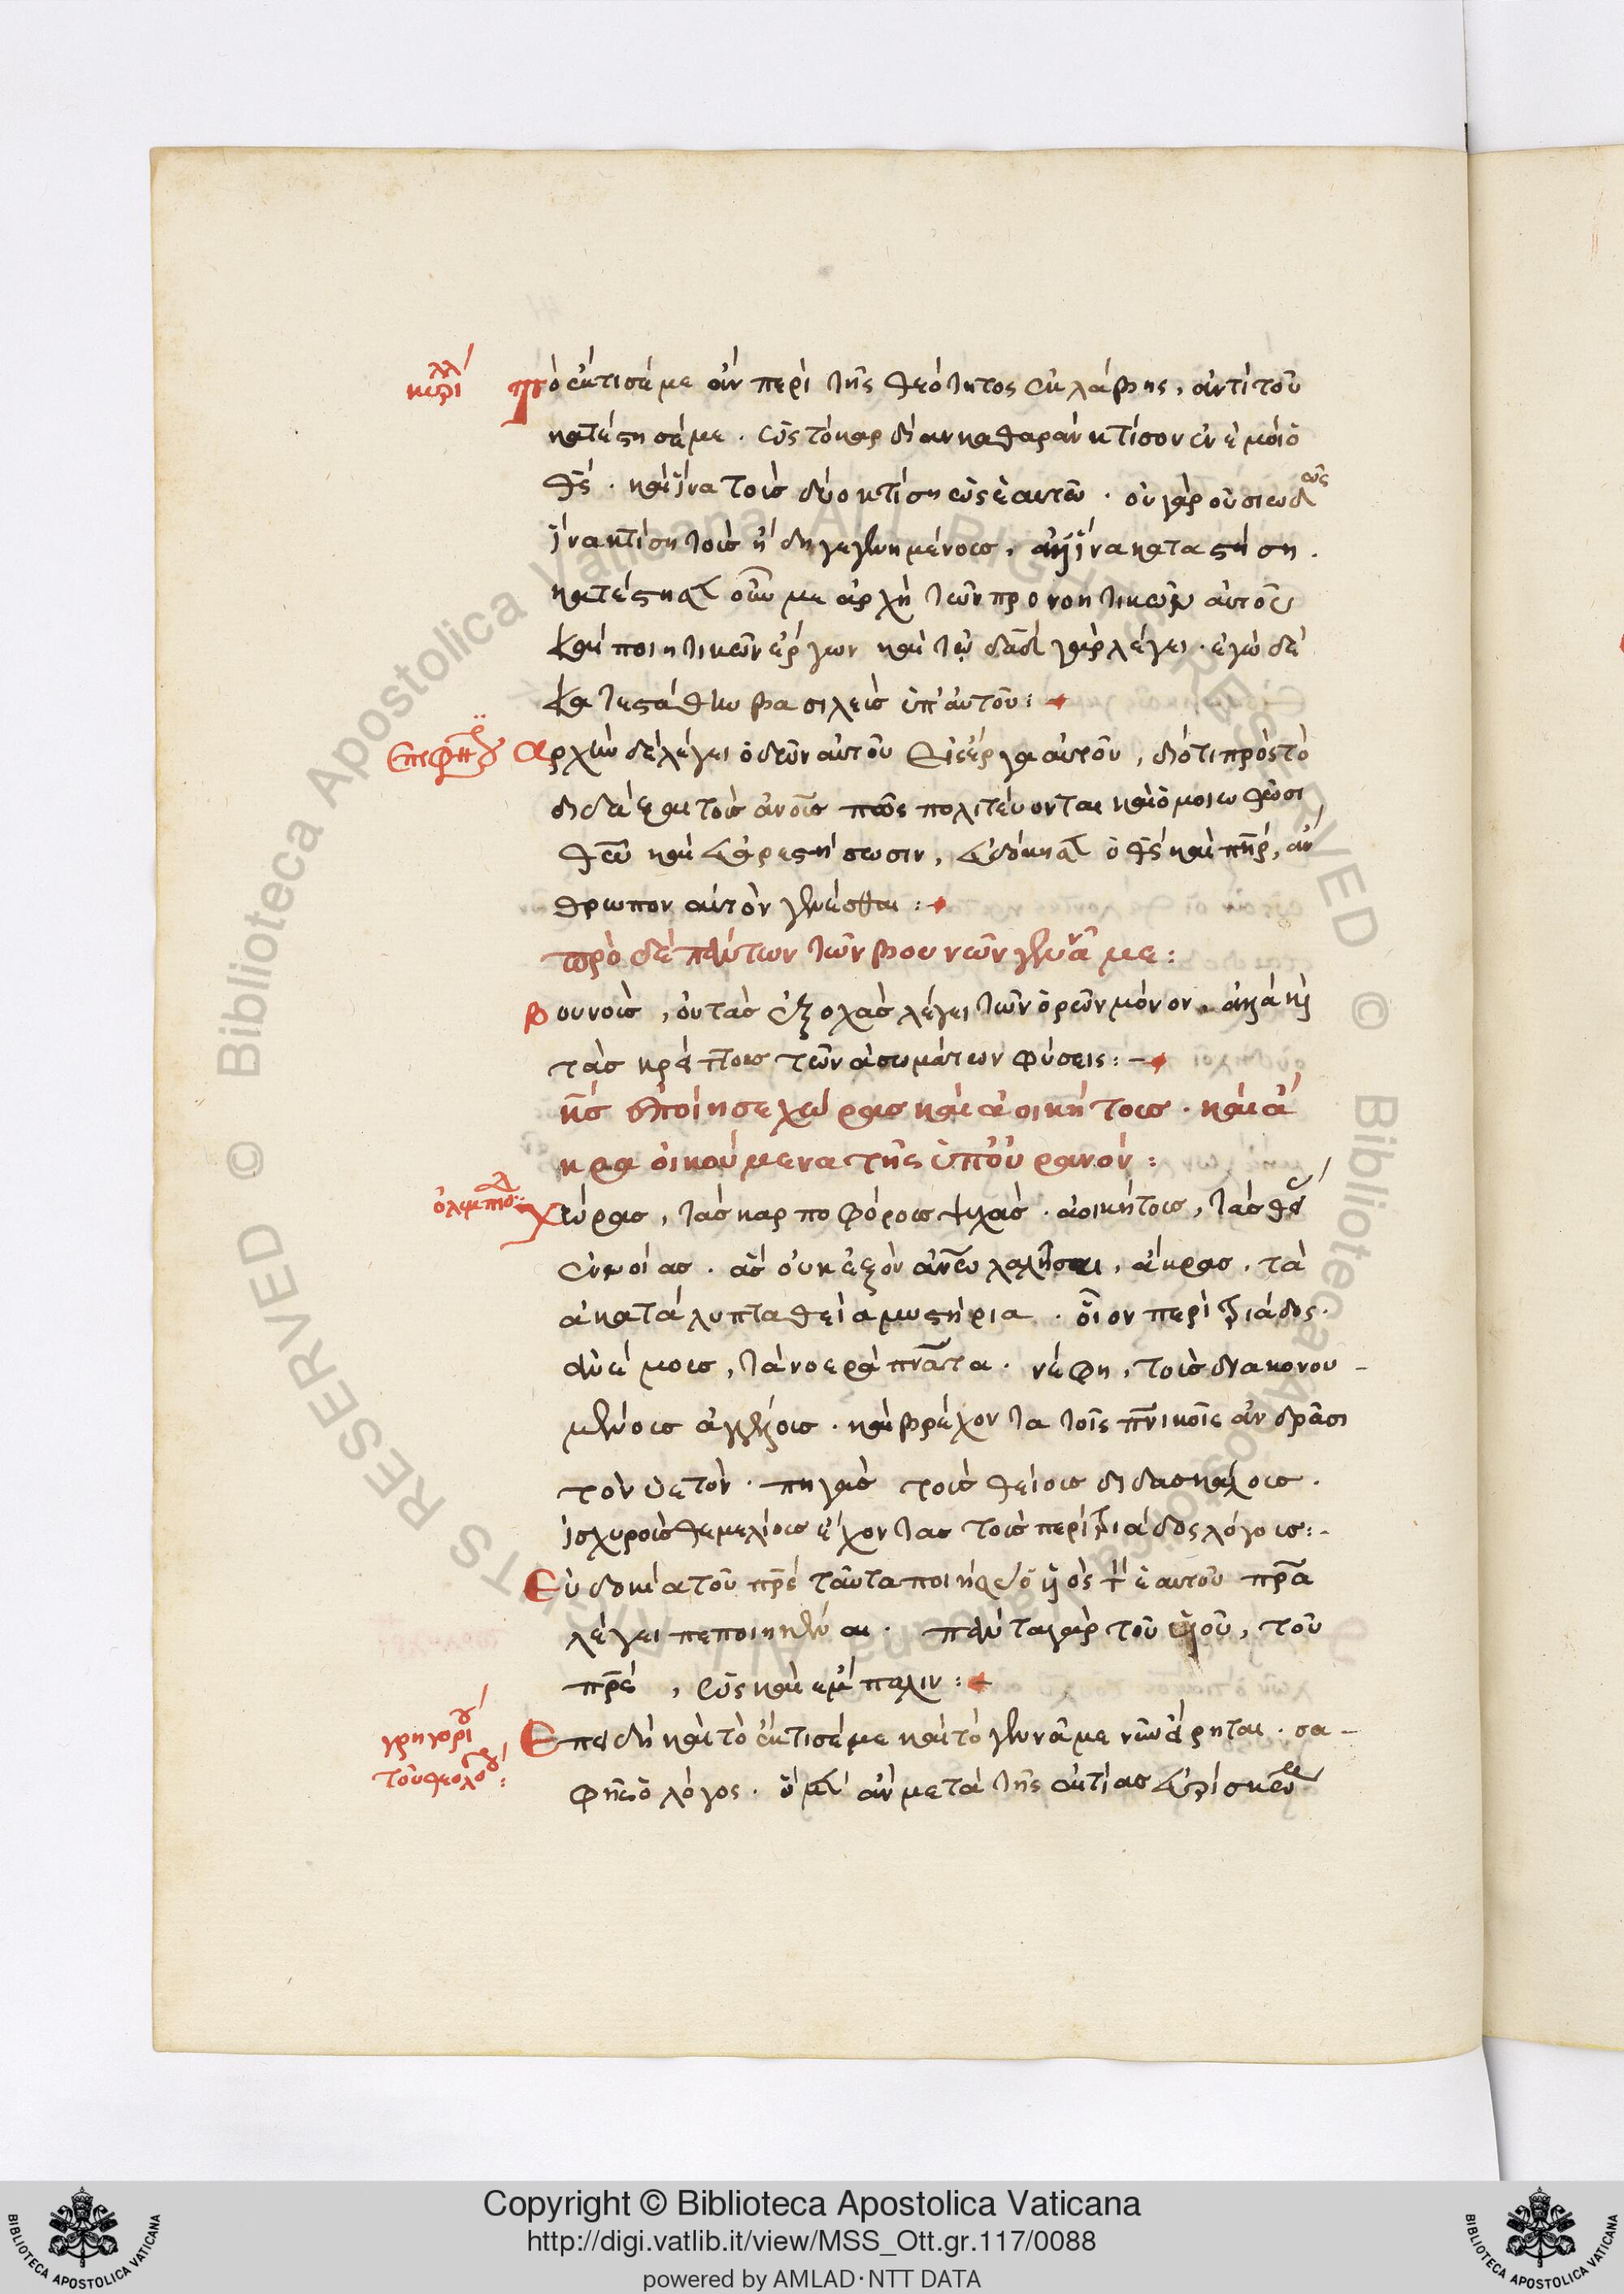 κυρίλλ
Τὸ ἔκτισέ με ἂν περὶ τῆς θεότητος ἐκλάβῃς, ἀντὶ τοῦ
κατέστησέ με. ὡς τὸ καρδίαν καθαρὰν κτίσον ἐν ἐμοὶ ὁ
θς. καὶ ἵνα τοὺς δύο κτίσῃ εἰς ἑαυτῶ. οὐ γὰρ οὐσιωδῶς
ἵνα κτίσῃ τοὺς ἤδη γεγενημένους, ἀλλ' ἵνα καταστήσῃ.
κατέστησεν οὖν με ἀρχὴ τῶν προνοητικῶν αὐτοῦ
καὶ ποιητικῶν ἔργων καὶ τῶ δαδ γὰρ λέγει. ἐγὼ δὲ
κατεστάθην βασιλεὺς ὑπ' αὐτοῦ:
Ἐπιφανίου
Ἀρχὴν δὲ λέγει ὁδῶν αὐτοῦ εἰς ἔργα αὐτοῦ, διότι πρὸς τὸ
διδάξαι τοὺς ἀνους πῶς πολιτεύονται καὶ ὁμοιωθῶσι
θεῶ καὶ εὐαρεστήσωσιν, εὐδόκησεν ὁ θς καὶ πηρ, ἄν
θρωπον αὐτὸν γενέσθαι:
πρὸ δὲ πάντων τῶν βουνῶν γεννᾶ με:
Βουνοὺς, οὐ τὰς ἐξοχὰς λέγει τῶν ὀρῶν μόνον. ἀλλὰ καὶ
τὰς κρείττους τῶν ἀσωμάτων φύσεις:
κς ἐποίησε χώρας καὶ ἀοικήτους. καὶ ἄ
κρα οἰκούμενα τῆς ὑπ' οὐρανόν:
ὀλυμπιοδ:
Χώρας, τὰς καρποφόρους ψυχάς. ἀοικήτους, τὰς θείας
ἐννοίας. ἃς οὐκ ἐξὸν ἀνθρώπω λαλῆσαι, ἄκρας, τὰ
ἀκατάλυπτα θεῖα μυστήρια. οἷον περὶ τριάδος.
ἀνέμους, τὰ νοερὰ πνατα. νέφη, τοὺς διακονου-
μένους ἀγγέλους. καὶ βρέχοντα τοῖς πνικοῖς ἀνδράσι
τὸν ὑετὸν. πηγὰς τοὺς θείους διδασκάλους.
ἰσχυροὺς θεμελίους ἔχοντας τοὺς περὶ τριάδος λόγους:-
Εὐδοκία τοῦ πρς ταῦτα ποιήσας ὁ υἱὸς τὸν ἑαυτοῦ πρα
λέγει πεποιηκέναι. πάντα γὰρ τοῦ υἱοῦ, τοῦ
πρς, ὡς καὶ ἔμπαλιν:
γρηγορίου
τοῦ θεολόγου:
Ἐπειδὴ καὶ τὸ ἔκτισέ με καὶ τὸ γεννᾶ με νῦν εἴρηται. σα-
φὴς ὁ λόγος. ὃ μὲν ἂν μετὰ τῆς αἰτίας εὑρίσκω
Copyright © Biblioteca Apostolica Vaticana
http://digi.vatlib.it/view/MSS_Ott.gr.117/0088
powered by AMLAD·NTT DATA